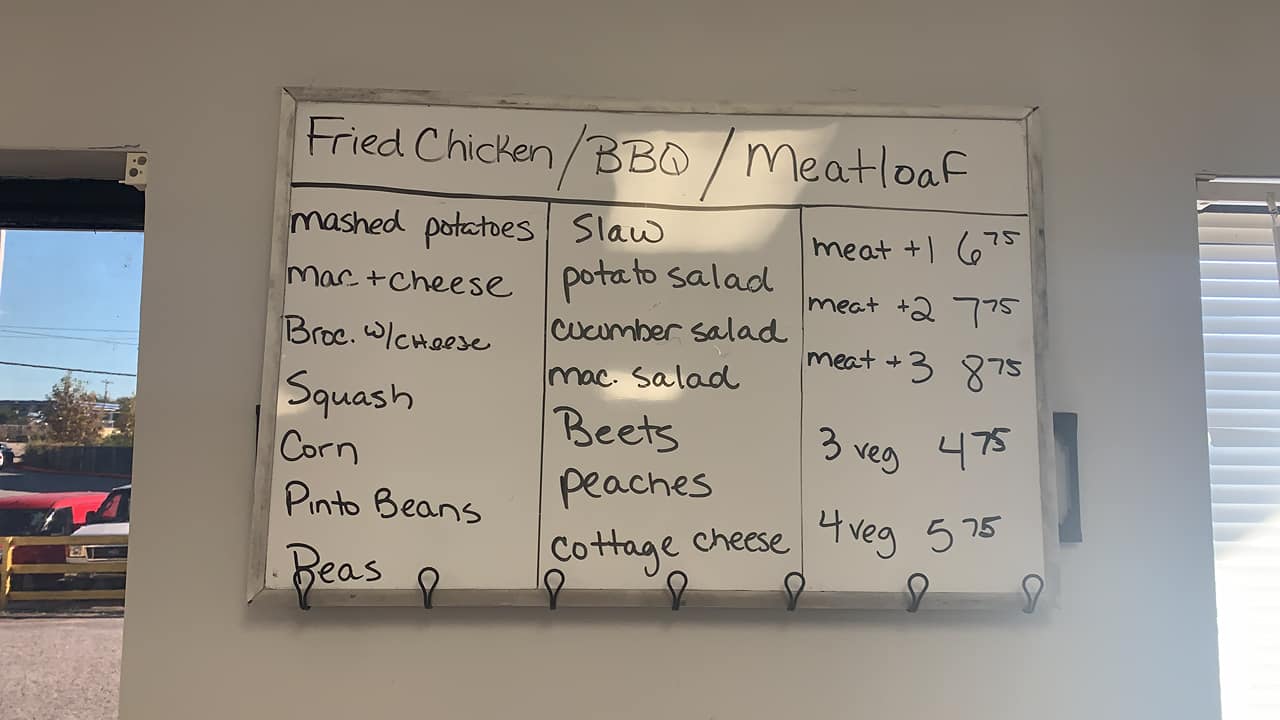 Fried Chicken / BBQ / Meatloaf
mashed potatoes
Mac + cheese
Broc. w/cheese
Squash
Corn
Pinto Beans
Peas
Slaw
potato salad
cucumber salad
mac. salad
Beets
peaches
cottage cheese
meat +1 6 75
meat +2 7 75
meat +3 8 75
3 veg 4 75
4 veg 5 75